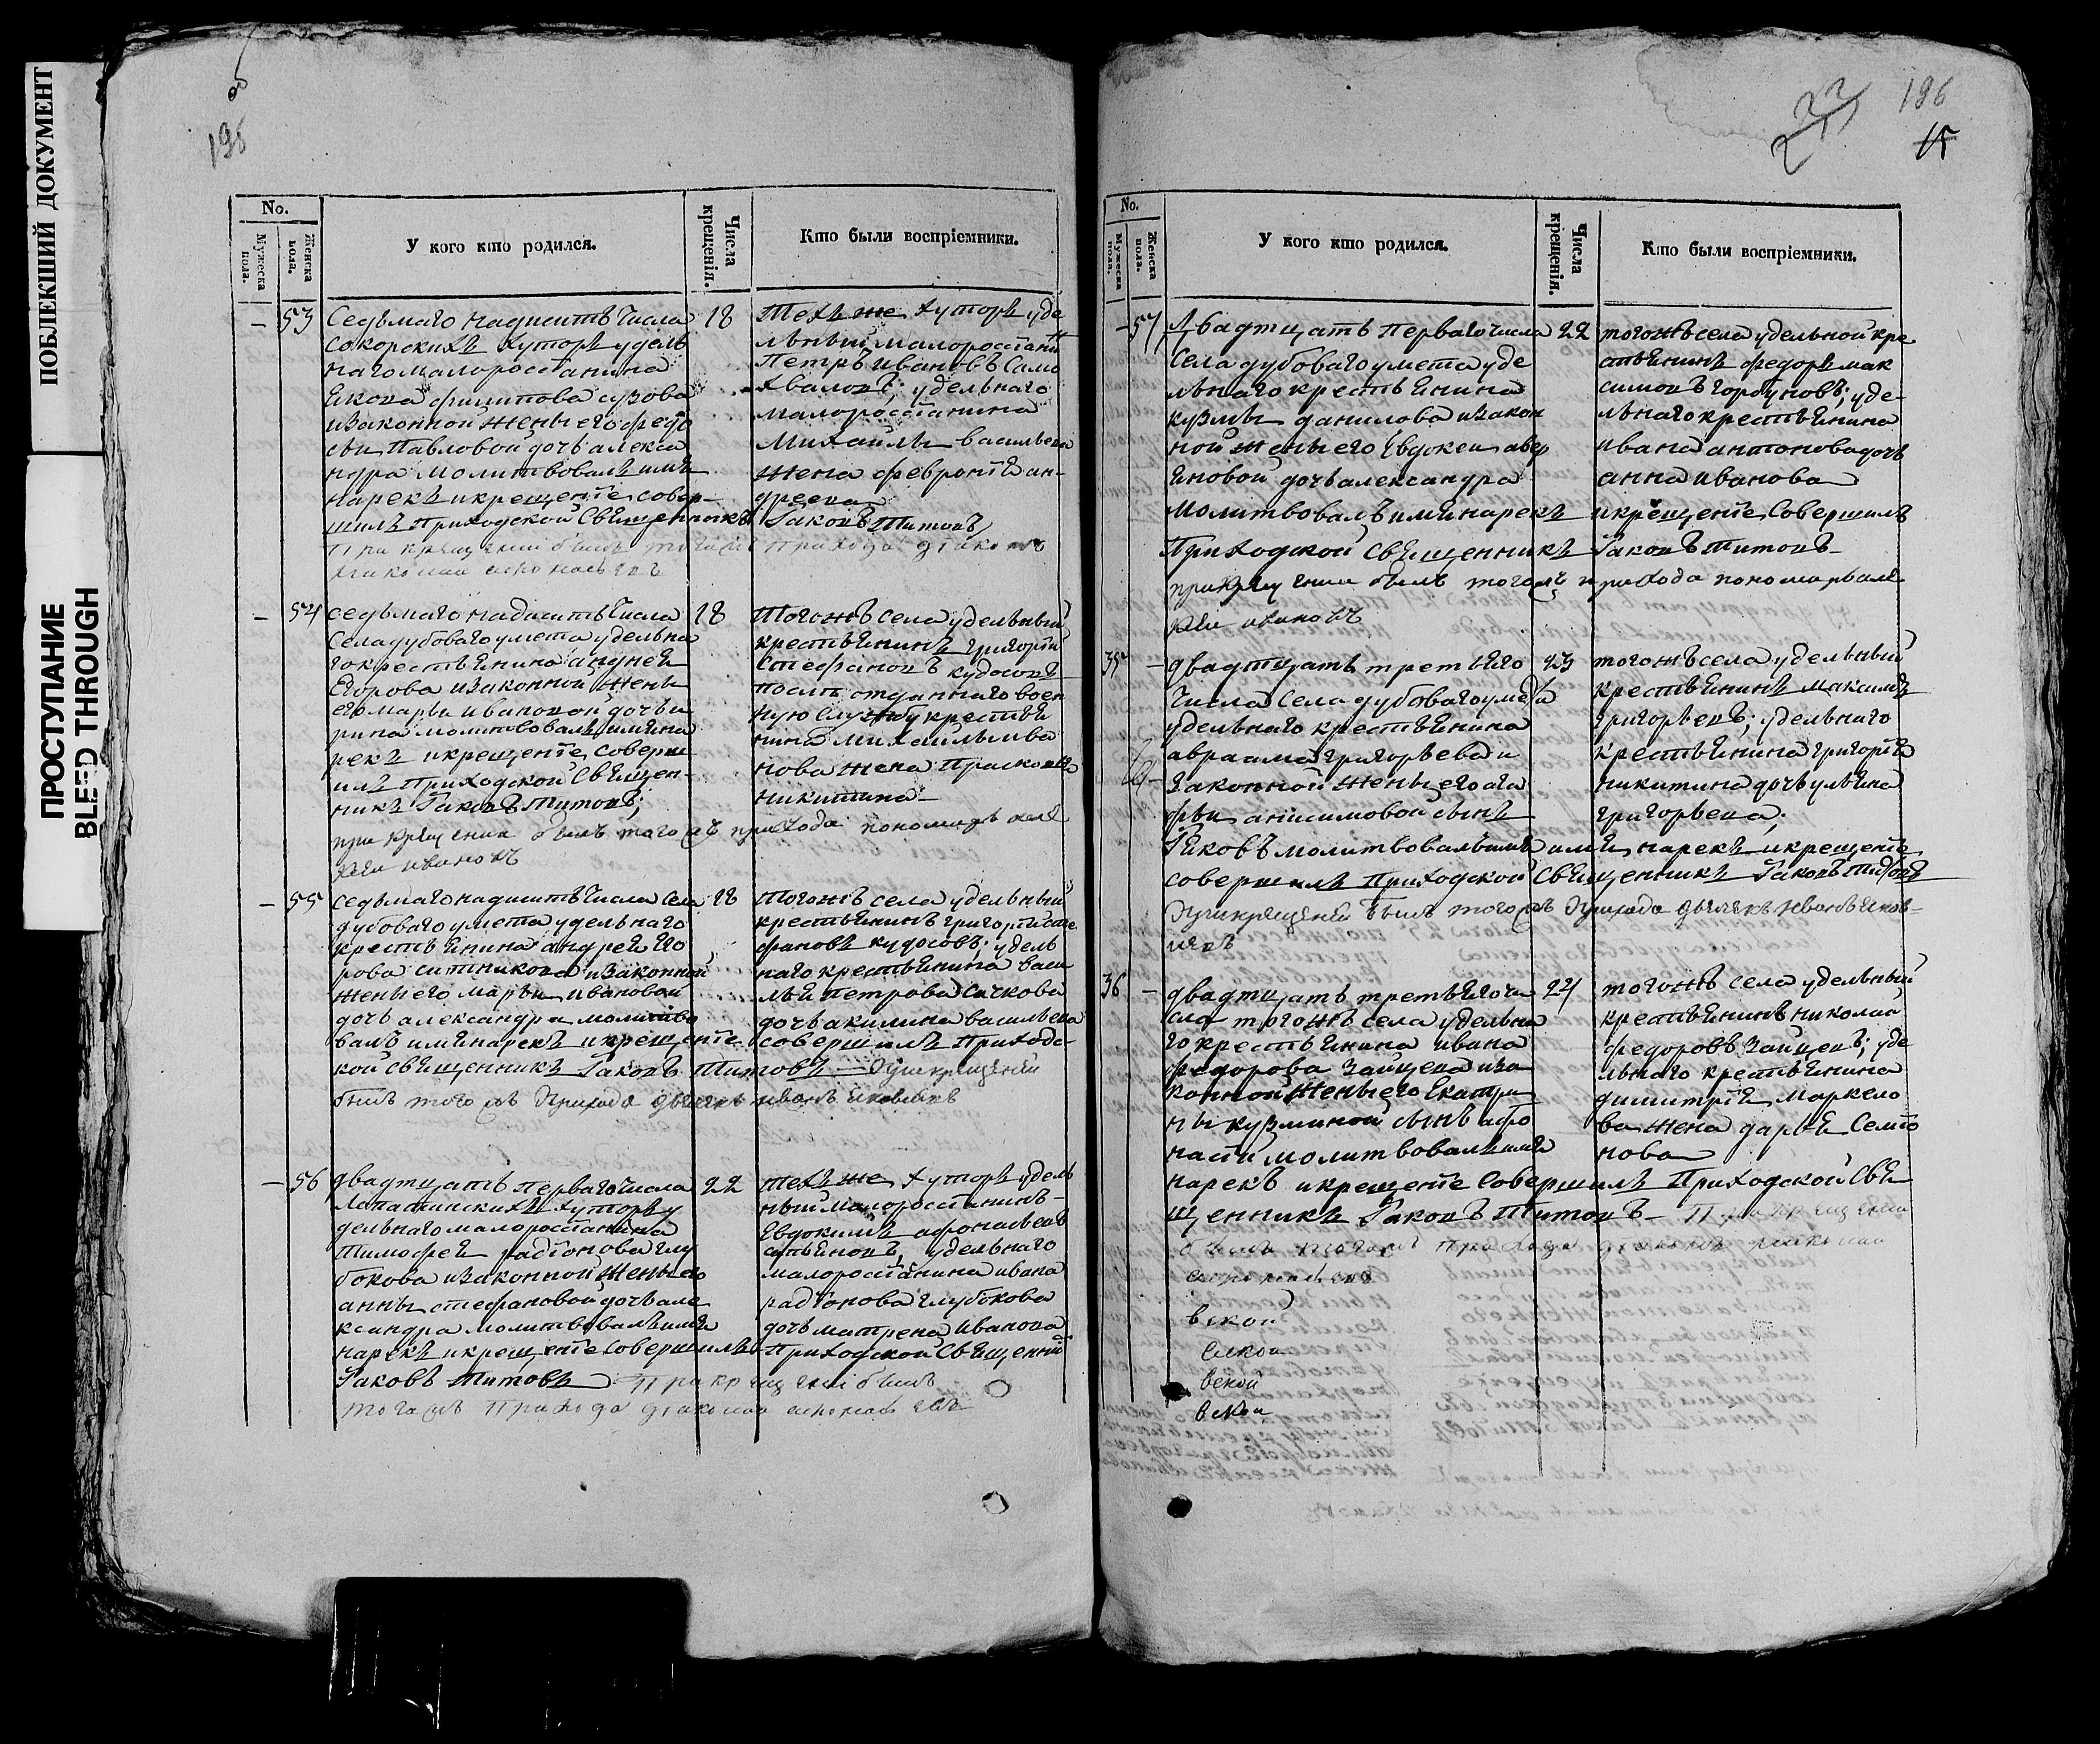 ПОБЛЕКШИЙ ДОКУМЕНТ
ПРОСТУПАНИЕ
BLEED THROUGH
195
No.
Мужеска пола.
Женска пола.
У кого кто родился.
Числа крещенія.
Кто были воспріемники.
— 53 Седьмаго надцать числа 18
сокорскихъ хуторъ удель
наго малороссіянина
Якова филипова сизова
изаконной жены его федо
сьи Павловой дочь алекса
ндра молитвовалъ имя
нарекъ икрещеніе совер-
шилъ Приходской Священникъ
При крещеніи былъ тогожъ
техъ же хуторъ уде
льный малороссіанин
Петръ ивановъ Само
хваловъ; удельнаго
малороссіанина
Михайлы васильева
жена февронія ан-
дреева
Іаковъ Титовъ
Прихода діаконъ
— 54 седьмаго надцать числа 18
Села дубоваго умета удельна
го крестьянина андрея
Егорова изаконной жены
его марьи ивановой дочь и
рина молитвовалъ имя на
рекъ икрещеніе соверш
илъ Приходской Священ-
никъ Іаковъ Титовъ;
при крещении былъ тогожъ прихода пономарь алек
сей ивановъ
Тогожъ села удельный
крестьянинъ григорій
Стефановъ кудосовъ
отданнаго воен
ную службу крестья
нина Михайлы ива
нова жена Прасковья
Никитина
— 55 седьмаго надцать числа села 18
дубоваго умета удельнаго
крестьянина андрея его
рова ситникова изаконной
жены его марьи ивановой
дочь александра молитво
валъ имя нарекъ икрещеніе совершилъ Приходс
кой священникъ Іаковъ Титовъ При крещеніи
былъ тогожъ Прихода дьячекъ иванъ яковлевъ
Тогожъ села удельный
крестьянинъ григорій сте
фановъ кудосовъ; удель
наго крестьянина васи
лья петрова Сачкова
дочь акилина васильева
— 56 двадцать перваго числа 22
Лапатинскихъ хуторъ у
дельнаго малороссіанина
Тимофея радіонова глу
бокова изаконной жены его
анны стефановой дочь але
ксандра молитвовалъ имя
нарекъ икрещеніе совершилъ Приходской Священникъ
Іаковъ Титовъ При крещеніи былъ
тогожъ Прихода
техъ же хуторъ удель
ный малороссіанинъ
Евдокимъ афонасьевъ
удельнаго
малороссіанина ивана
радіонова глубокова
дочь матрена иванова
196
15
No.
Мужеска пола.
Женска пола.
У кого кто родился.
Числа крещенія.
Кто были воспріемники.
— 57 Двадцать перваго числа 22
Села дубоваго умета уде
льнаго крестьянина
кузмы данилова изакон
ной жены его Евдокеи авер
яновой дочь александра
молитвовалъ имя нарекъ икрещеніе Совершилъ
Приходской священникъ Іаковъ Титовъ
при крещении былъ тогожъ прихода пономарь алек
сей ивановъ
тогожъ села удельной кре
стьянинъ федоръ мак
симовъ горбуновъ; уде-
льнаго крестьянина
ивана антонова дочь
анна иванова
35 — двадцать третьяго 23
числа села дубоваго умета
удельнаго крестьянина
авраама григорьева и
законной жены его ага
фьи анисимовой сынъ
Іяковъ молитвовалъ имя нарекъ икрещеніе
совершилъ Приходской священникъ Іаковъ Титовъ
При крещеніи былъ тогожъ Прихода дьячекъ иванъ яков-
левъ
тогожъ села удельный
крестьянинъ максимъ
григорьевъ; удельнаго
крестьянина григорія
никитина дочь ульяна
григорьева;
36 — двадцать третьяго чи 24
сла тогожъ села удельна
го крестьянина ивана
федорова зайцева иза
конной жены его Екатери
ны кузминой сынъ афо
насій молитвовалъ имя
нарекъ икрещеніе Совершилъ Приходской Свя
щенникъ Іаковъ Титовъ При крещеніи
былъ тогожъ Прихода
тогожъ села удельный
крестьянинъ николай
федоровъ зайцевъ; уде
льнаго крестьянина
димитрія маркело
ва жена дарья Семіо
нова